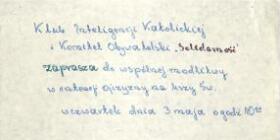 Klub Inteligencji Katolickiej
i Komitet Obywatelski "Solidarność"
zaprasza do wspólnej modlitwy
w intencji ojczyzny na Mszy Św.
w czwartek dnia 3 maja o godz 10⁰⁰